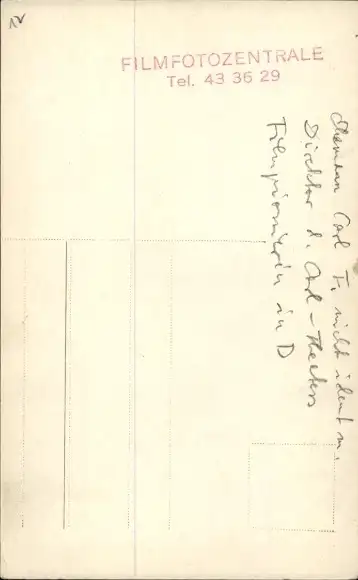 FILMFOTOZENTRALE
Tel. 43 36 29
Ehemann Carl F. nicht ident m.
Direktor d. Carl-Theaters
Filmpionierin in D